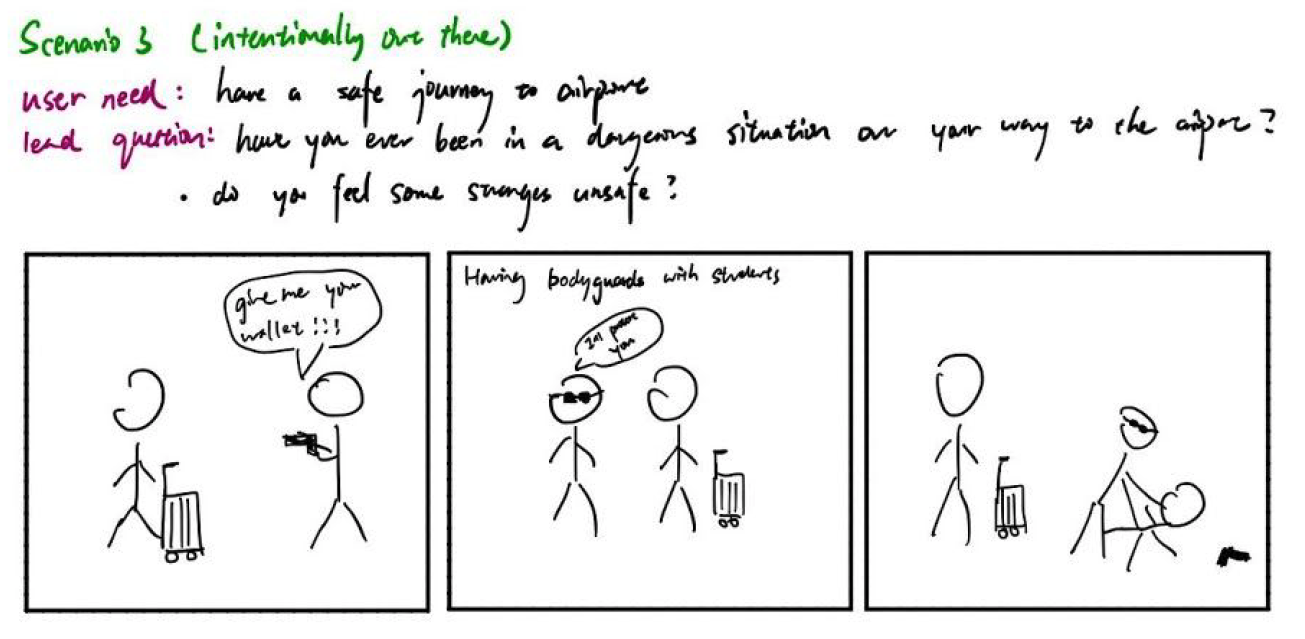 Scenario 3 (intentionally out there)
user need: have a safe journey to airport
lead question: have you ever been in a dangerous situation on your way to the airport?
• do you feel some stranges unsafe?
give me your
wallet!!!
Having bodyguards with students
I'll protect
you